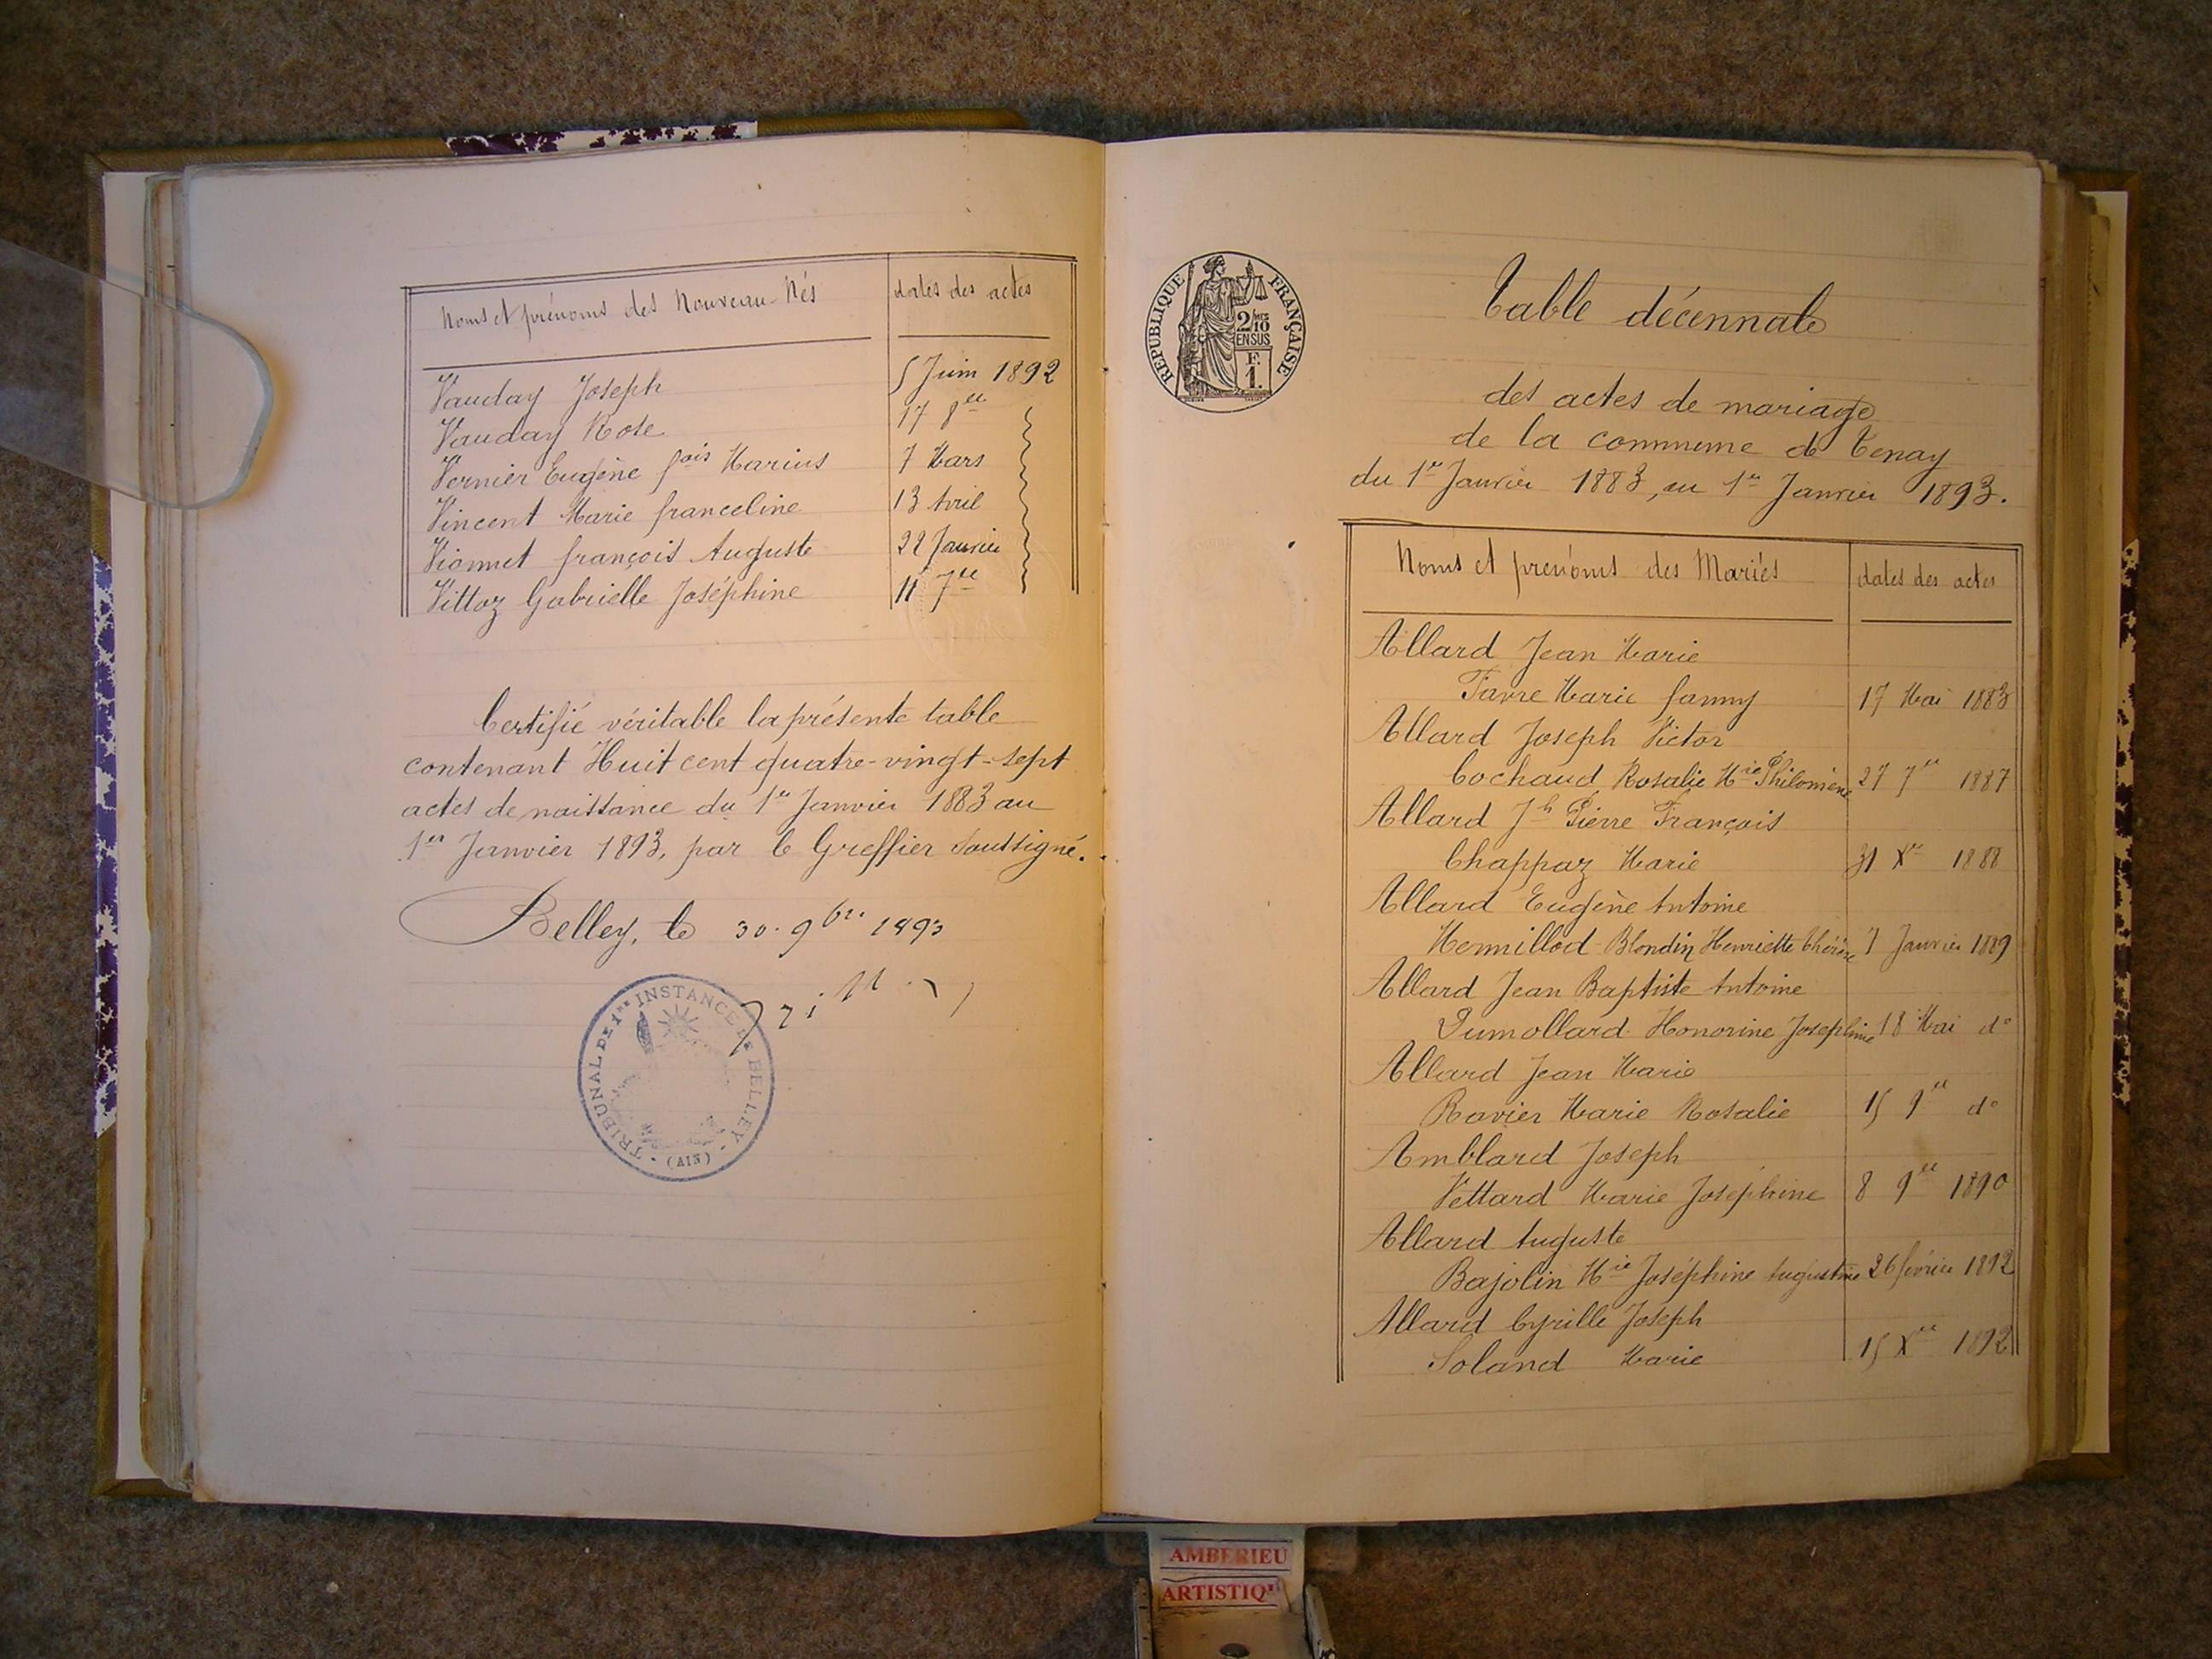 Noms et prénoms des Nouveau-Nés dates des actes
Vauday Joseph 5 Juin 1892
Vauday Rose 17 8bre
Vernier Eugène fçois Marius 7 Mars
Vincent Marie franceline 13 Avril
Vionnet françois Auguste 22 Janvier
Vittoz Gabrielle Joséphine 11 7bre
Certifié véritable la présente table
contenant Huit cent quatre-vingt-sept
actes de naissance du 1er Janvier 1883 au
1er Janvier 1893, par le Greffier soussigné.
Belley, le 30. 9bre. 1893
TRIBUNAL DE 1RE INSTANCE DE BELLEY
(AIN)
REPUBLIQUE FRANÇAISE
2/10
EN SUS
F.
1.
Table décennale
des actes de mariage
de la commune de Tenay
du 1er Janvier 1883, au 1er Janvier 1893.
Noms et prénoms des Mariés dates des actes
Allard Jean Marie
Favre Marie fanny 17 Mai 1883
Allard Joseph Victor
Cochaud Rosalie Mie Philomène 27 7bre 1887
Allard Jh Pierre François
Chappaz Marie 31 Xbre 1888
Allard Eugène Antoine
Blondin Henriette Thérèse 7 Janvier 1889
Allard Jean Baptiste Antoine
Dumollard Honorine Josephine 18 Mai do
Allard Jean Marie
Ravier Marie Rosalie 15 9bre do
Amblard Joseph
Vettard Marie Joséphine 8 9bre 1890
Allard Auguste
Bajolin Mie Joséphine Augustine 26 février 1892
Allard Cyrille Joseph
Soland Marie 15 Xbre 1892
AMBERIEU
ARTISTIQ